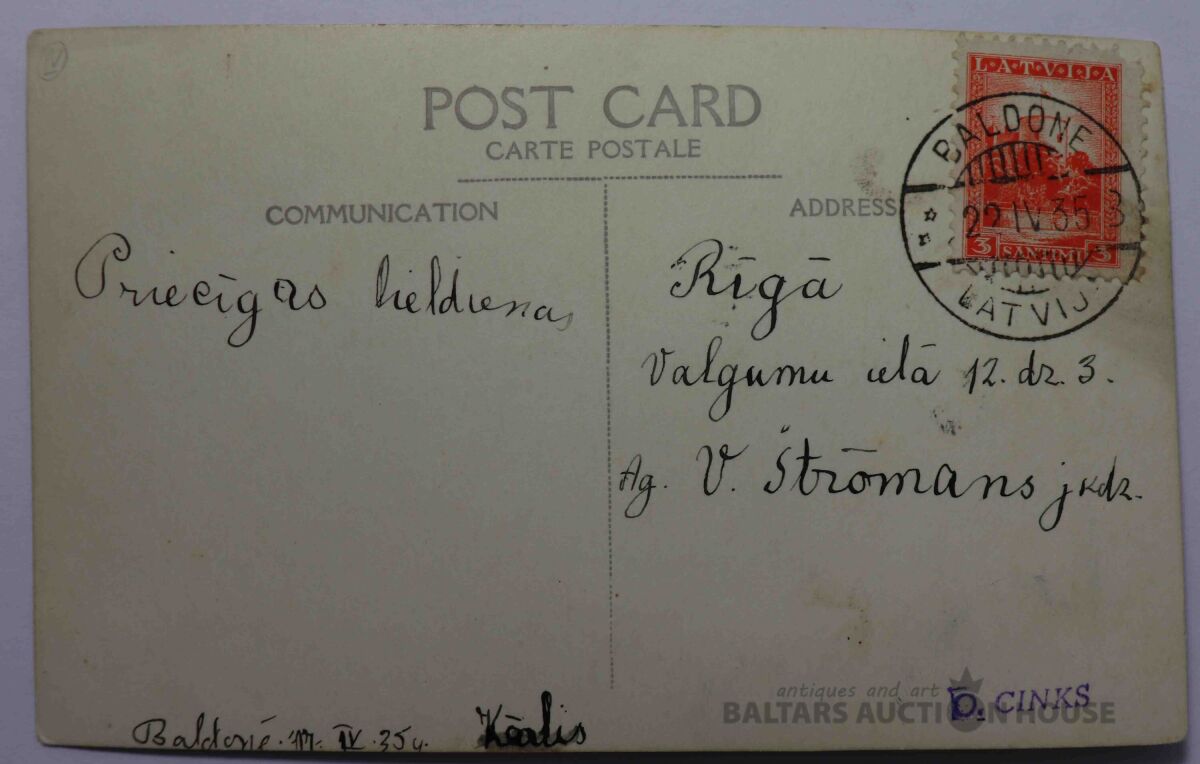 POST CARD
CARTE POSTALE
COMMUNICATION
ADDRESS
LATVIJA
3 SANTIMI 3
BALDONE
22 IV 35 3
LATVIJ
Priecīgas lieldienas
Rīgā
Valgumu ielā 12. dz. 3.
Ag. V. Štrōmans jkdz.
Baldonē IV. 35
Kārlis
antiques and art
BALTARS AUCTION HOUSE
CINKS